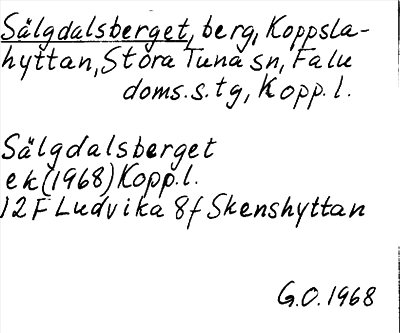 Sälgdalsberget, berg, Koppsla-
hyttan, Stora Tuna sn, Falu
doms.s.tg, Kopp. l.
Sälgdalsberget
ek(1968) Kopp.l.
12F Ludvika 8f Skenshyttan
G.O. 1968